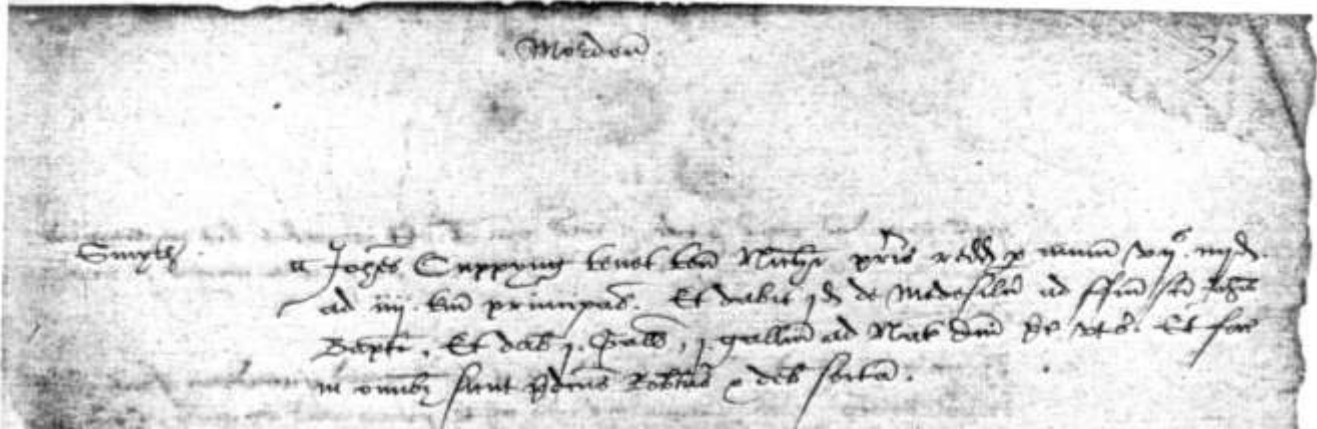 Mordon
37
Smyth Johes Cuppyng tenet ten Nichi pris redd p annu vijs iiijd
ad iiij t'm principal. Et dabit jd de Medesilu ad ffm sci Johis
Bapte. Et dab j. Gall, j. gallin ad Nat dni p'c Et fac
in omibz sicut p'dcus Robtus & deb secta.